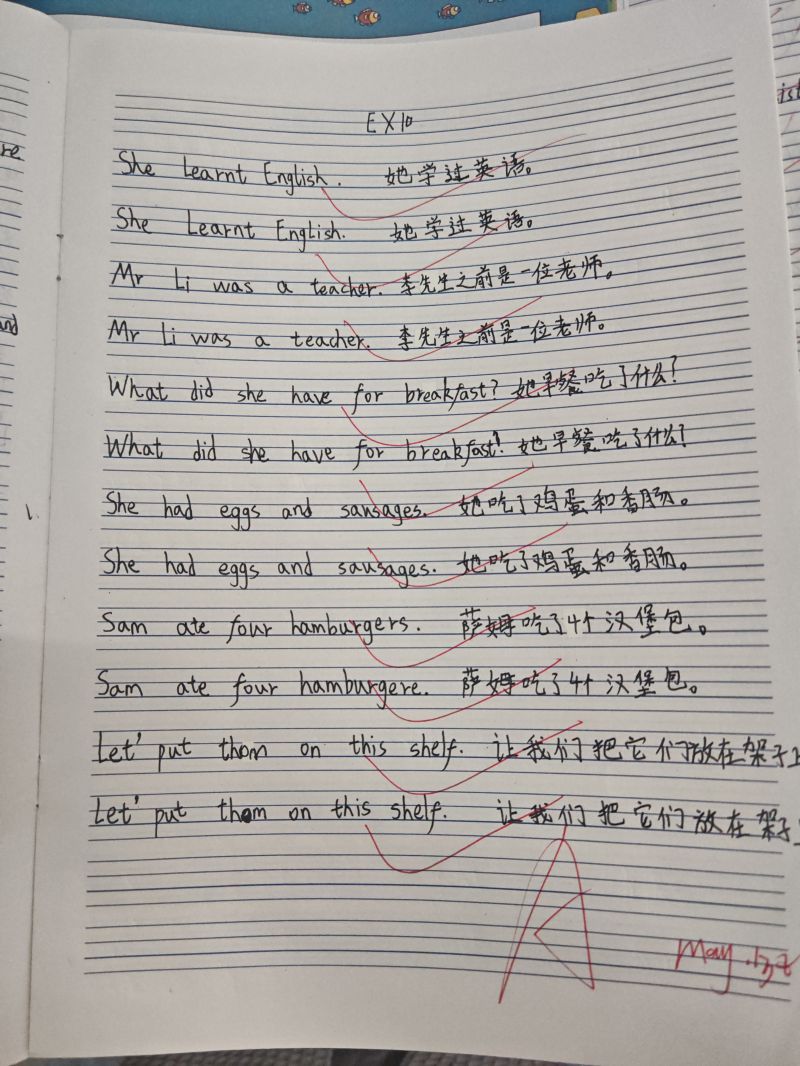 EX10
She Learnt English. 她学过英语。
She Learnt English. 她学过英语。
Mr Li was a teacher. 李先生之前是一位老师。
Mr Li was a teacher. 李先生之前是一位老师。
What did she have for breakfast? 她早餐吃了什么?
What did she have for breakfast? 她早餐吃了什么?
She had eggs and sausages. 她吃了鸡蛋和香肠。
She had eggs and sausages. 她吃了鸡蛋和香肠。
Sam ate four hamburgers. 萨姆吃了4个汉堡包。
Sam ate four hamburgere. 萨姆吃了4个汉堡包。
Let' put them on this shelf. 让我们把它们放在架子上
Let' put them on this shelf. 让我们把它们放在架子
A
May.